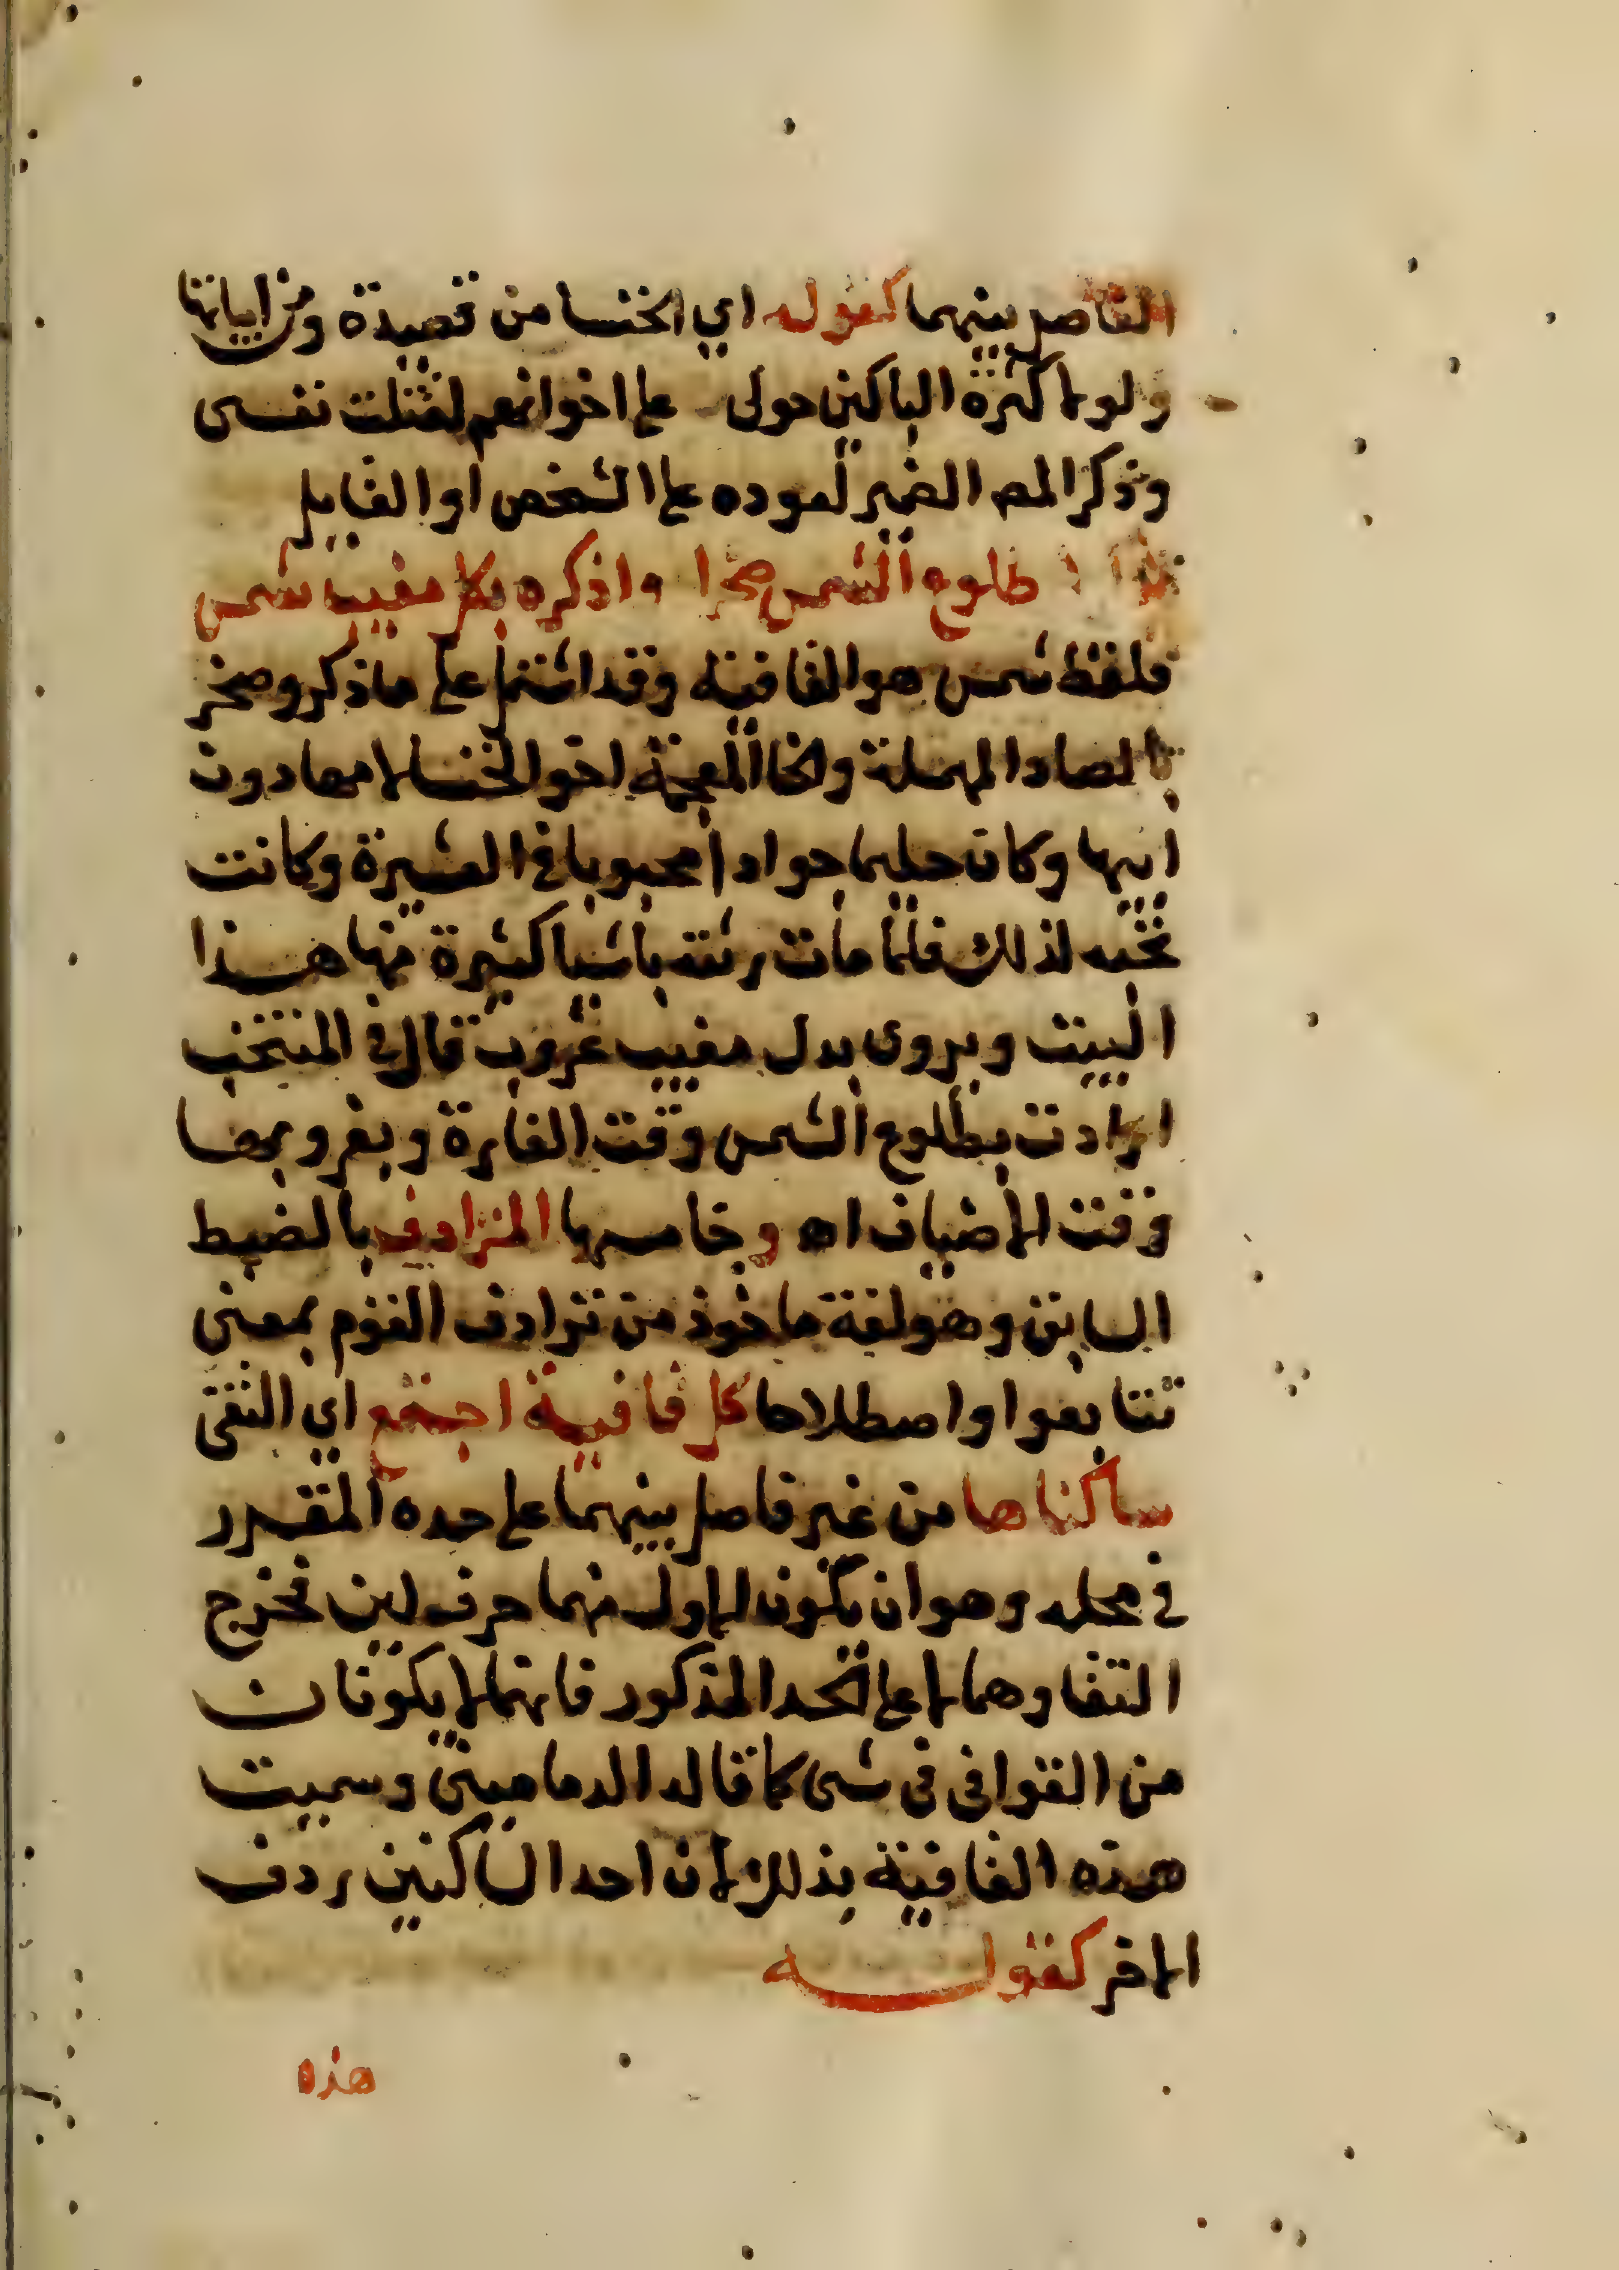 الفاصل بينهما كقوله اي الخنسا من قصيدة ومن ابياتها
ولولا كثرة الباكين حولى على اخوانهم لقتلت نفسى
وذكر المص الضمير لعوده على الشخص او القايل
طلوع الشمس صخرا واذكره بكل مغيب شمس
فلفظ شمس هو القافية وقد اشتمل على ما ذكر وصخر
بالصاد المهملة والخا المعجمة اخو الخنسا لامها دون
ابيها وكان حليما جوادا محبوبا فى العشيرة وكانت
تحبه لذلك فلما مات رثته باشيا كثيرة منها هذا
البيت ويروى بدل مغيب غروب قال فى المنتخب
ارادت بطلوع الشمس وقت الغارة وبغروبها
وقت الاضياف اه وخامسها المترادف بالضبط
السابق وهو لغة ماخوذ من ترادف القوم بمعنى
تتابعوا واصطلاحا كل قافية اجتمع اي التقى
ساكناها من غير فاصل بينهما على حده المقرر
فى محله وهو ان يكون الاول منهما حرف لين فخرج
التقاوهما لا على الحد المذكور فانهما لا يكونان
من القوافى فى شى كما قاله الدمامينى وسميت
هذه القافية بذلك لان احد الساكنين ردف
الاخر كقوله
هذه